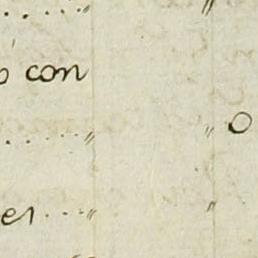 .....〃 〃
con
.....〃 〃 0
er ...〃 〃